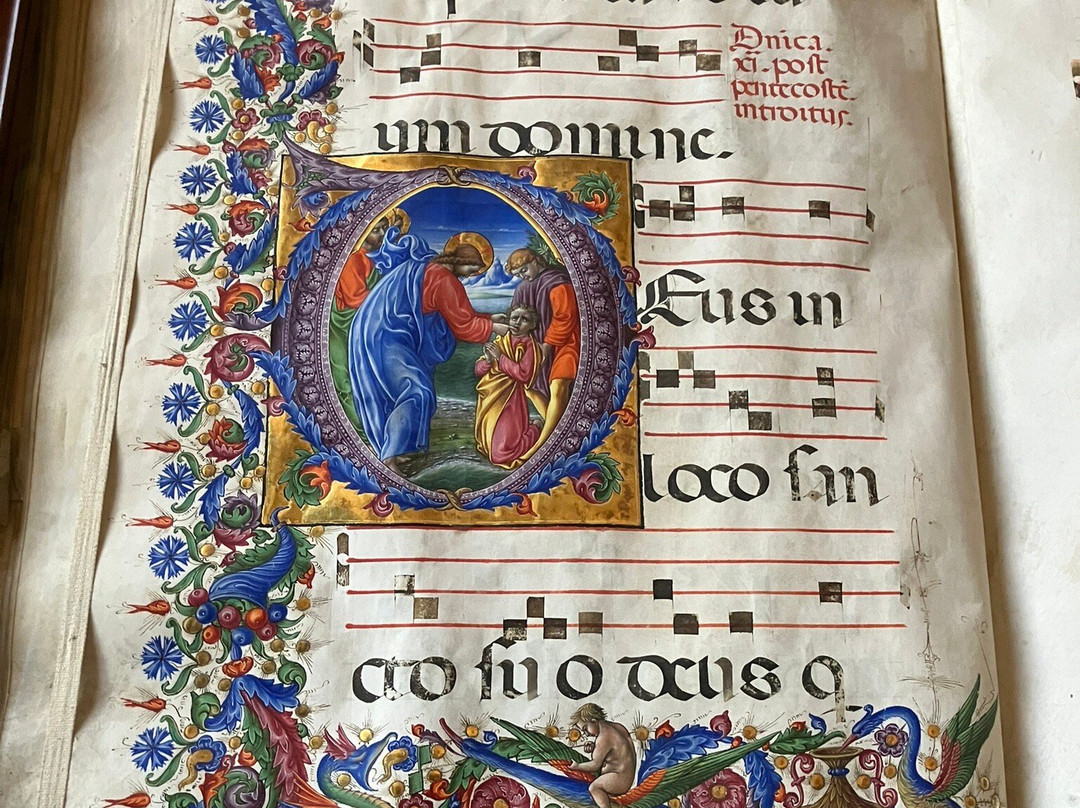 Dnica.
xi. post
pentecostē.
introitus.
um domine.
DEus in
loco san
cto suo deus q